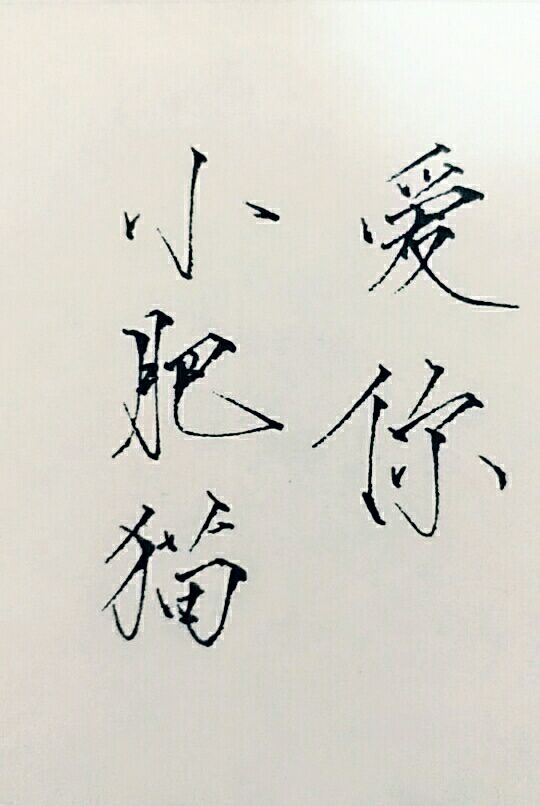 爱你
小肥猫